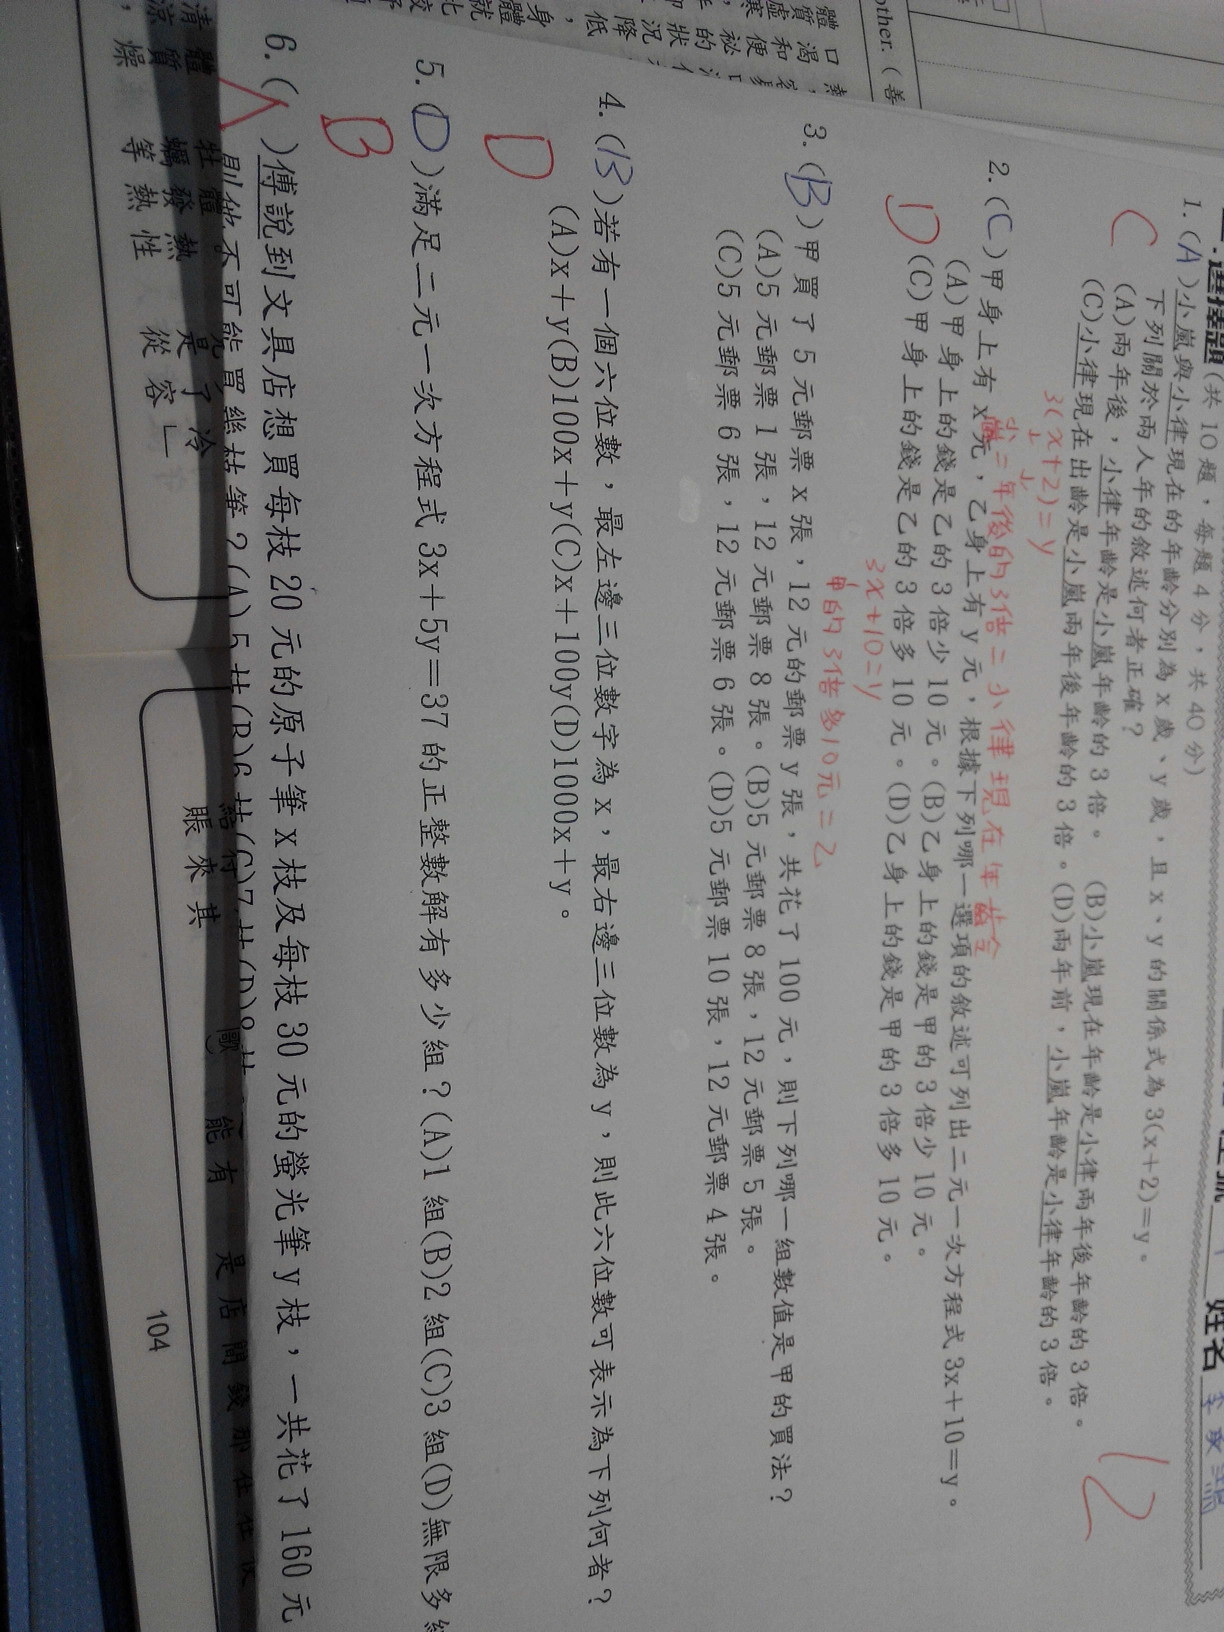 選擇題(共 10 題，每題 4 分，共 40 分)
姓名
12
1.(A)小嵐與小律現在的年齡分別為 x 歲、y 歲，且 x、y 的關係式為 3(x+2)=y。
下列關於兩人年的敘述何者正確？
C
(A)兩年後，小律年齡是小嵐年齡的 3 倍。 (B)小嵐現在年齡是小律兩年後年齡的 3 倍。
(C)小律現在出齡是小嵐兩年後年齡的 3 倍。(D)兩年前，小嵐年齡是小律年齡的 3 倍。
3(x+2)=y
二年後的3倍=小律現在年齡
2.(C)甲身上有 x 元，乙身上有 y 元，根據下列哪一選項的敘述可列出二元一次方程式 3x+10=y。
(A)甲身上的錢是乙的 3 倍少 10 元。(B)乙身上的錢是甲的 3 倍少 10 元。
D
(C)甲身上的錢是乙的 3 倍多 10 元。(D)乙身上的錢是甲的 3 倍多 10 元。
3x+10=y
甲的3倍多10元=乙
3.(B)甲買了 5 元郵票 x 張，12 元的郵票 y 張，共花了 100 元，則下列哪一組數值是甲的買法？
(A)5 元郵票 1 張，12 元郵票 8 張。(B)5 元郵票 8 張，12 元郵票 5 張。
(C)5 元郵票 6 張，12 元郵票 6 張。(D)5 元郵票 10 張，12 元郵票 4 張。
4.(B)若有一個六位數，最左邊三位數字為 x，最右邊三位數為 y，則此六位數可表示為下列何者？
(A)x+y(B)100x+y(C)x+100y(D)1000x+y。
D
5.(D)滿足二元一次方程式 3x+5y=37 的正整數解有多少組？(A)1 組(B)2 組(C)3 組(D)無限多
B
6.( )傅說到文具店想買每枝 20 元的原子筆 x 枝及每枝 30 元的螢光筆 y 枝，一共花了 160 元
A
則他不可能買幾枝筆？(A)5 枝(B)6 枝(C)7 枝(D)8 枝
other. (善
104